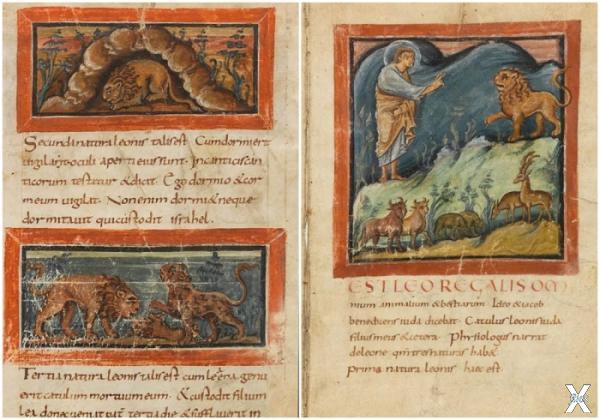 Secunda natura leonis talis est. Cum dormierit
vigilant oculi aperti eius sunt. In canticis can
ticorum testatur & dicit. Ego dormio & cor
meum vigilat. Non enim dormi& neque
dormitavit qui custodit israhel.
Tertia natura leonis talis est cum genu
erit catulum mortuum & custodit filium
donec tertia die & sufflaverit in
EST LEO REGALIS OM
nium animalium & bestiarum. Ideo & iacob
benedicens iuda dicebat. Catulus leonis iuda
filius meus & cetera. Physiologus narrat
de leone tres naturas hab&
prima natura leonis haec est.
X